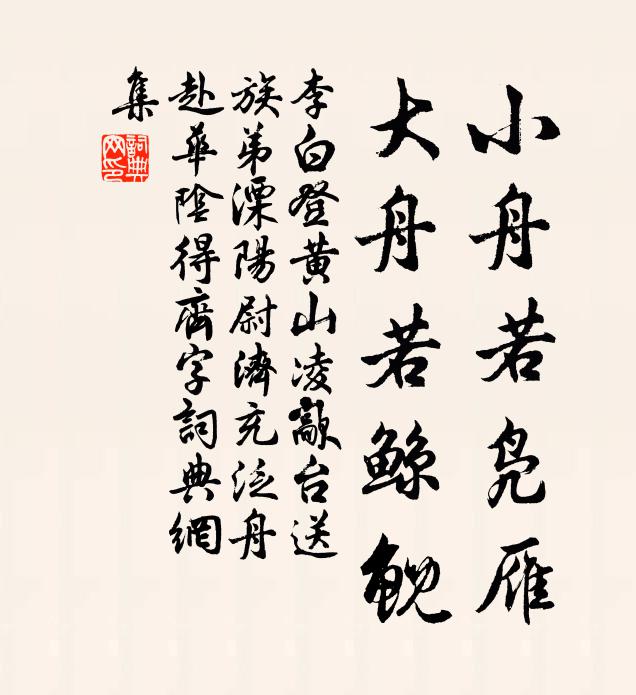 小舟若凫雁
大舟若鲸鲵
李白登黄山凌歊台送
族弟溧陽尉濟充泛舟
赴華陰得齊字詞典網
集
詞典
網印